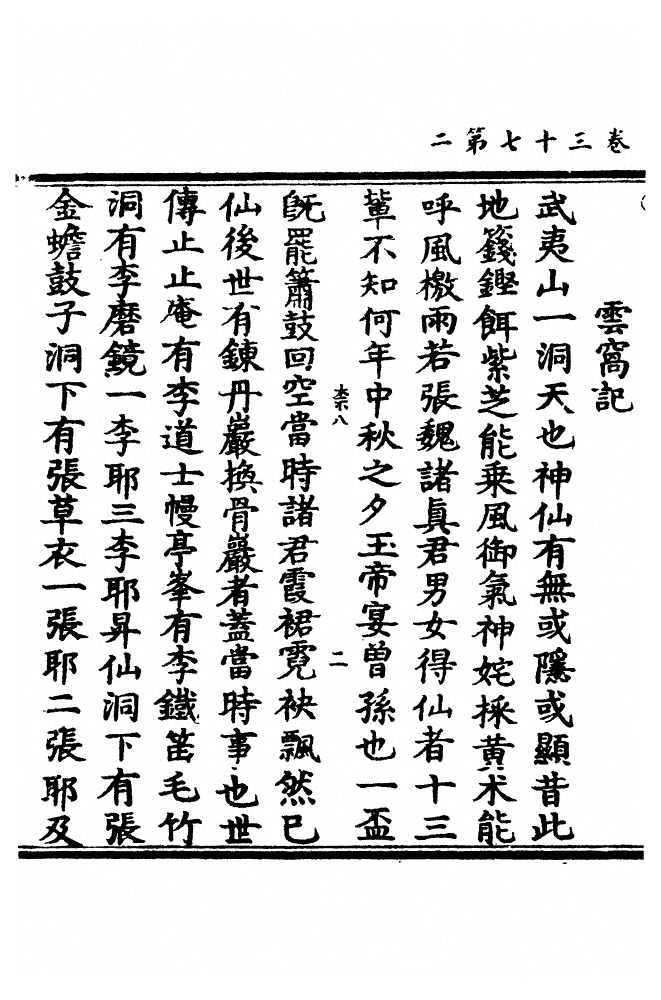 卷三十七第二
雲窩記
武夷山一洞天也神仙有無或隱或顯昔此
地籛鏗餌紫芝能乘風御氣神姹採黃术能
呼風檄雨若張魏諸眞君男女得仙者十三
輩不知何年中秋之夕玉帝宴曾孫也一盃
太六八 二
旣罷簫鼓回空當時諸君霞裙霓袂飄然已
仙後世有鍊丹巖換骨巖者蓋當時事也世
傳止止庵有李道士幔亭峯有李鐵笛毛竹
洞有李磨鏡一李耶三李耶昇仙洞下有張
金蟾鼓子洞下有張草衣一張耶二張耶及